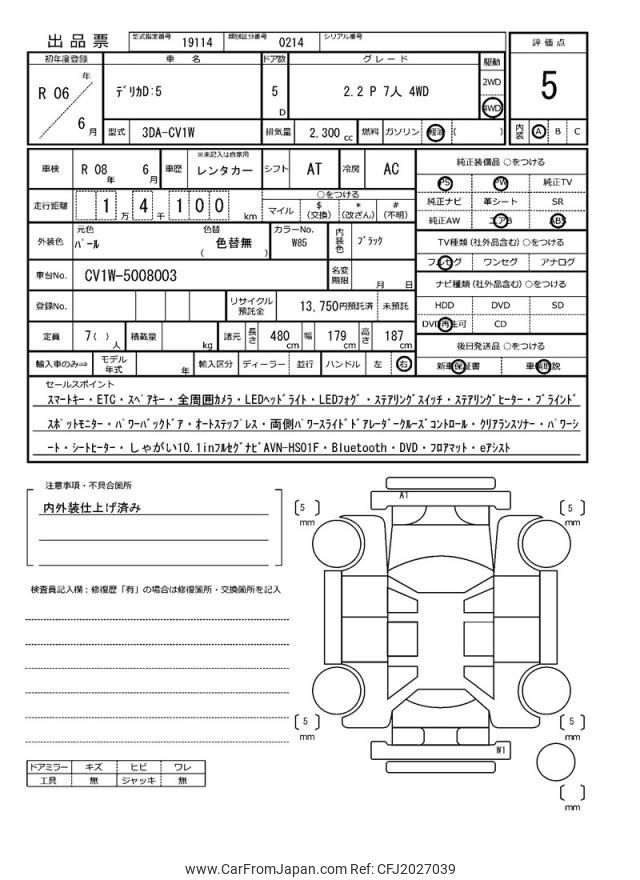 出品票
型式指定番号 19114 類別区分番号 0214 シリアル番号
評価点
5
内装 A B C
初年度登録 車名 ドア数 グレード 駆動
R 06 年 6 月
デリカD:5
5 D
2.2 P 7人 4WD
2WD
4WD
型式 3DA-CV1W 排気量 2,300 cc 燃料 ガソリン 軽油 ( )
車検 R 08 年 6 月 車歴 ※未記入は自家用 レンタカー シフト AT 冷房 AC
走行距離 1 万 4 千 1 0 0 km
○をつける
マイル $ (交換) * (改ざん) # (不明)
外装色 元色 パール 色替 色替無 ( ) カラーNo. W85 内装色 ブラック
車台No. CV1W-5008003 名変期限 月 日
登録No. リサイクル預託金 13,750円預託済 未預託
定員 7( ) 人 積載量 kg 諸元 長さ 480 cm 幅 179 cm 高さ 187 cm
輸入車のみ⇒ モデル年式 年 輸入区分 ディーラー 並行 ハンドル 左 右
純正装備品 ○をつける
PS PW 純正TV
純正ナビ 革シート SR
純正AW エアB ABS
TV種類 (社外品含む) ○をつける
フルセグ ワンセグ アナログ
ナビ種類 (社外品含む) ○をつける
HDD DVD SD
DVD再生可 CD
後日発送品 ○をつける
新車保証書 車輌取説
セールスポイント
スマートキー・ETC・スペアキー・全周囲カメラ・LEDヘッドライト・LEDフォグ・ステアリングスイッチ・ステアリングヒーター・ブラインド
スポットモニター・パワーバックドア・オートステップレス・両側パワースライドドアレーダークルーズコントロール・クリアランスソナー・パワーシ
ート・シートヒーター・しゃがい10.1inフルセグナビAVN-HS01F・Bluetooth・DVD・フロアマット・eアシスト
注意事項・不具合箇所
内外装仕上げ済み
検査員記入欄:修復歴「有」の場合は修復箇所・交換箇所を記入
ドアミラー キズ ヒビ ワレ
工具 無 ジャッキ 無
A1
[ 5 ] mm
[ 5 ] mm
[ 5 ] mm
[ 5 ] mm
W1
[ ] mm
www.CarFromJapan.com Ref: CFJ2027039